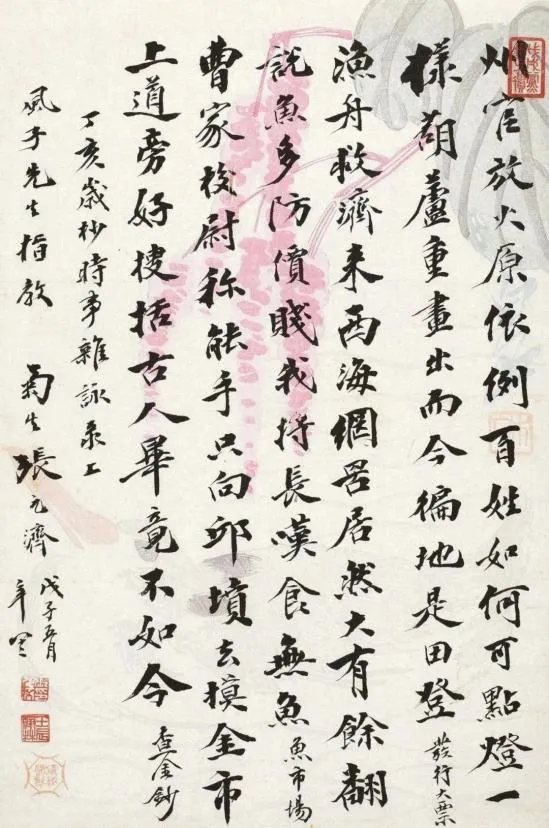 州官放火原依例百姓如何可點燈一
樣葫蘆重畫出而今徧地是田登 發行大票
漁舟救濟來西海網罟居然大有餘翻
說魚多防價賤我將長嘆食無魚 魚市場
曹家校尉称能手只向邱墳去摸金市
上道旁好搜括古人畢竟不如今 查金鈔
丁亥歲杪時事雜詠录工
風子先生指教
菊生張元濟
戊子